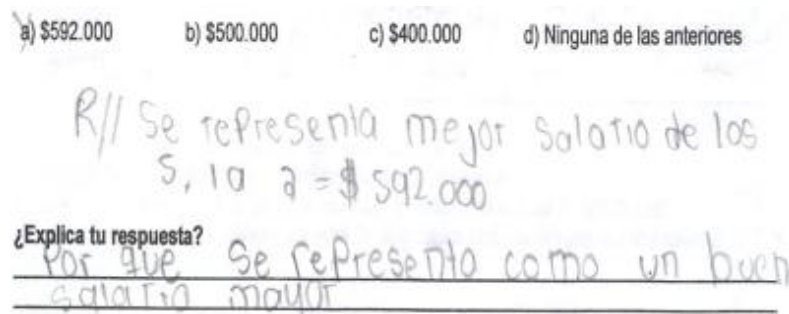 a) $592.000 b) $500.000 c) $400.000 d) Ninguna de las anteriores
R// Se representa mejor Salario de los
5, la a = $ 592.000
¿Explica tu respuesta?
Por que Se represento como un buen
salario mayor